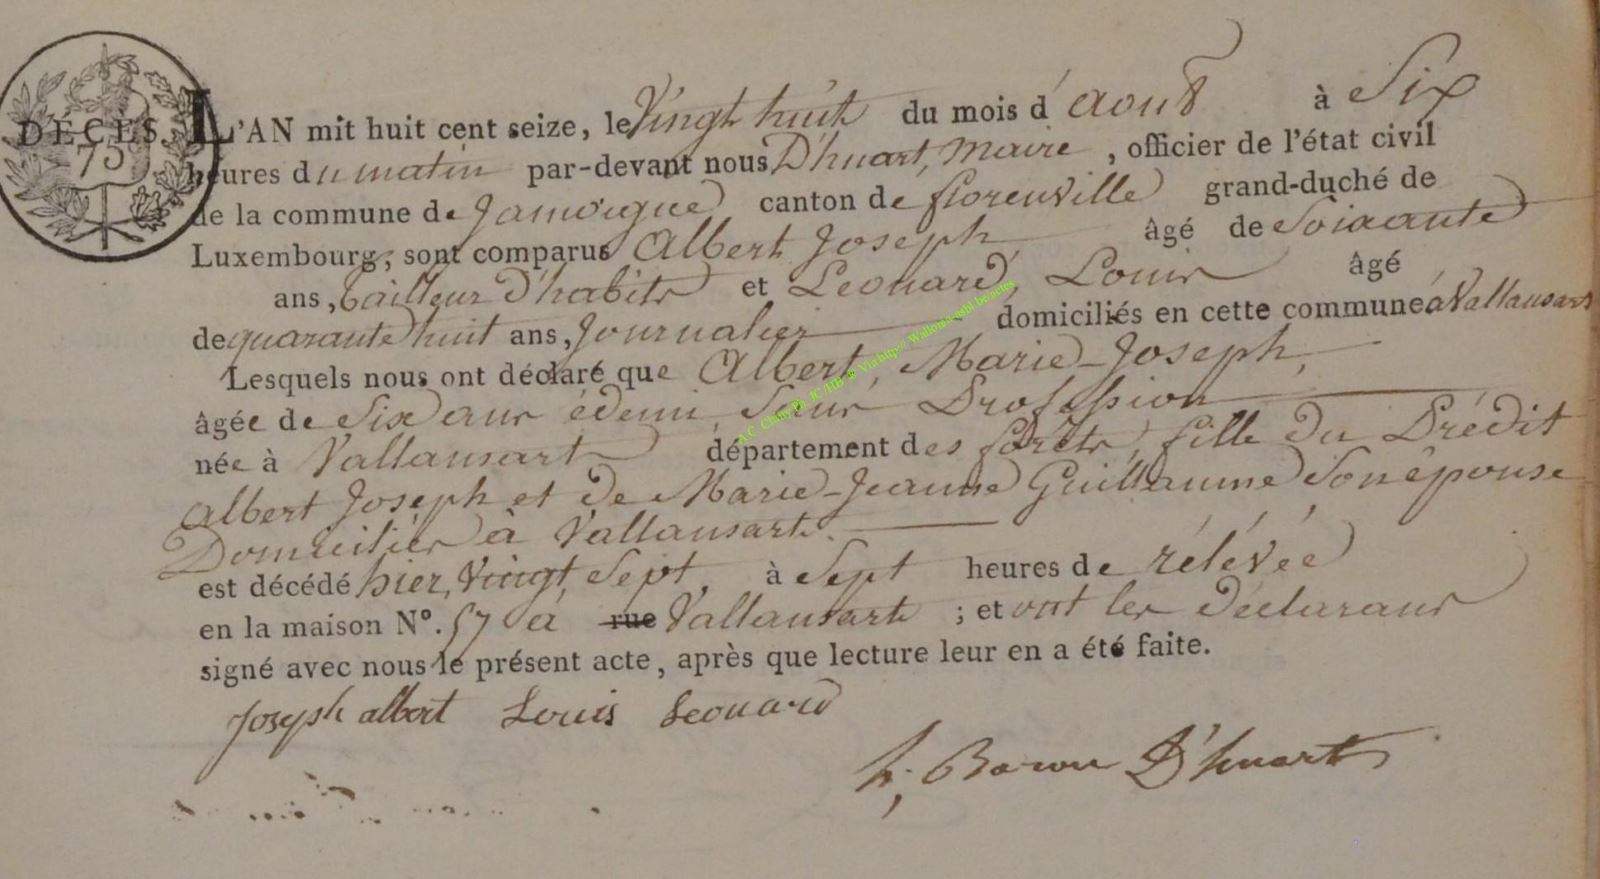 DÉCÈS.
75
L'AN mil huit cent seize, le Vingt huit du mois d'aout à Six
heures du matin par-devant nous D'huart, Maire, officier de l'état civil
de la commune de Jamoigne canton de florenville grand-duché de
Luxembourg, sont comparus Albert Joseph âgé de Soixante
ans, tailleur d'habits et Leonard, Louis âgé
de quarante huit ans, Journalier domiciliés en cette commune á Vallansart
Lesquels nous ont déclaré que Albert, Marie-Joseph,
âgée de Six ans édemi, Sans Profession
née à Vallansart département des forêts, fille du Prédit
Albert Joseph et de Marie-Jeanne Guillaume Son épouse
Domiciliés à Vallansart.
est décédé hier, Vingt, Sept à Sept heures de rélévée
en la maison N°. 57 à rue Vallansart ; et ont les déclarans
signé avec nous le présent acte, après que lecture leur en a été faite.
Joseph albert Louis Leonard
h; Baron D'huart